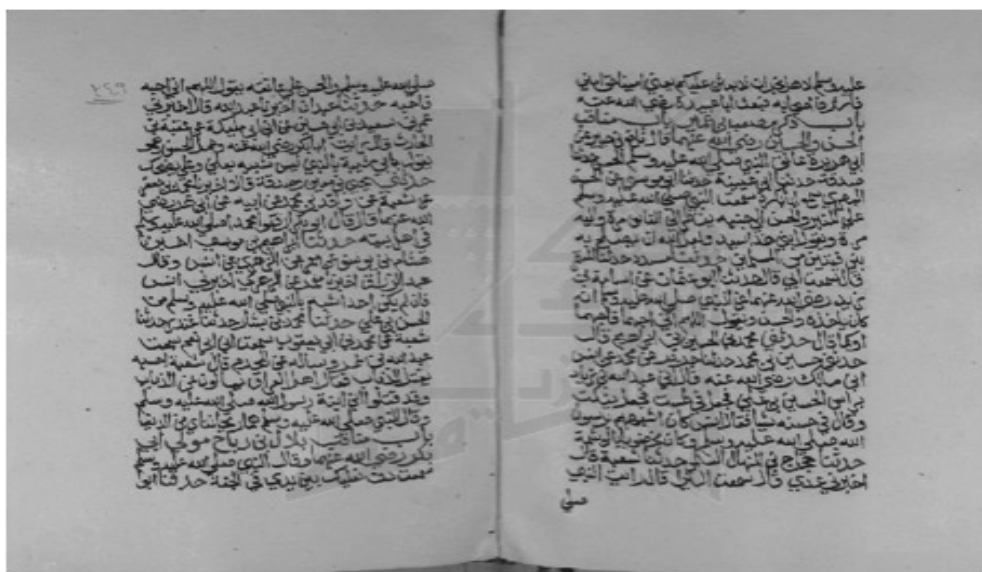 عليه وسلم لاهل نجران لابعثن عليكم يعني امينا حق امين
اصحابه فبعث ابا عبيدة رضي الله عنه
باب ذكر مصعب ابن عمير باب مناقب
الحسن والحسين رضي الله عنهما قال نافع بن جبير عن
ابي هريرة عانق النبي صلى الله عليه وسلم الحسن حدثنا
صدقة حدثنا ابن عيينة حدثنا ابو موسى عن الحسن
البصري سمع ابا بكرة سمعت النبي صلى الله عليه وسلم
على المنبر والحسن الى جنبه ينظر الى الناس مرة واليه
مرة ويقول ابني هذا سيد ولعل الله ان يصلح به
بين فئتين من المسلمين حدثنا مسدد حدثنا المعتمر
قال سمعت ابي قال حدثنا ابو عثمان عن اسامة بن
زيد رضي الله عنهما عن النبي صلى الله عليه وسلم انه
كان ياخذه والحسن ويقول اللهم اني احبهما فاحبهما
او كما قال حدثني محمد بن الحسين بن ابراهيم قال
حدثني حسين بن محمد حدثنا جرير عن محمد عن انس
ابن مالك رضي الله عنه قال اتي عبيد الله بن زياد
براس الحسين بن علي فجعل في طست فجعل ينكت
وقال في حسنه شيا فقال انس كان اشبههم برسول
الله صلى الله عليه وسلم وكان مخضوبا بالوسمة
حدثنا حجاج بن المنهال حدثنا شعبة قال
اخبرني عدي قال سمعت البراء قال رايت النبي
صلى
٢٦٩
صلى الله عليه وسلم والحسن على عاتقه يقول اللهم اني احبه
فاحبه حدثنا عبدان اخبرنا عبد الله قال اخبرني
عمر بن سعيد بن ابي حسين عن ابن ابي مليكة عن عقبة بن
الحارث قال رايت ابا بكر رضي الله عنه وحمل الحسن وهو
يقول بابي شبيه بالنبي ليس شبيه بعلي وعلي يضحك
حدثني يحيى بن معين وصدقة قالا اخبرنا محمد بن جعفر
عن شعبة عن واقد بن محمد عن ابيه عن ابن عمر رضي
الله عنهما قال قال ابو بكر ارقبوا محمدا صلى الله عليه وسلم
في اهل بيته حدثنا ابراهيم بن موسى اخبرنا
هشام بن يوسف عن معمر عن الزهري عن انس وقال
عبد الرزاق اخبرنا معمر عن الزهري اخبرني انس
قال لم يكن احد اشبه بالنبي صلى الله عليه وسلم من
الحسن بن علي حدثنا محمد بن بشار حدثنا غندر حدثنا
شعبة عن محمد بن ابي يعقوب سمعت ابن ابي نعم سمعت
عبد الله بن عمر وساله عن المحرم قال شعبة احسبه
يقتل الذباب فقال اهل العراق يسالون عن الذباب
وقد قتلوا ابن ابنة رسول الله صلى الله عليه وسلم
وقال النبي صلى الله عليه وسلم هما ريحانتاي من الدنيا
باب مناقب بلال بن رباح مولى ابي
بكر رضي الله عنهما وقال النبي صلى الله عليه وسلم
سمعت دف نعليك بين يدي في الجنة حدثنا ابو